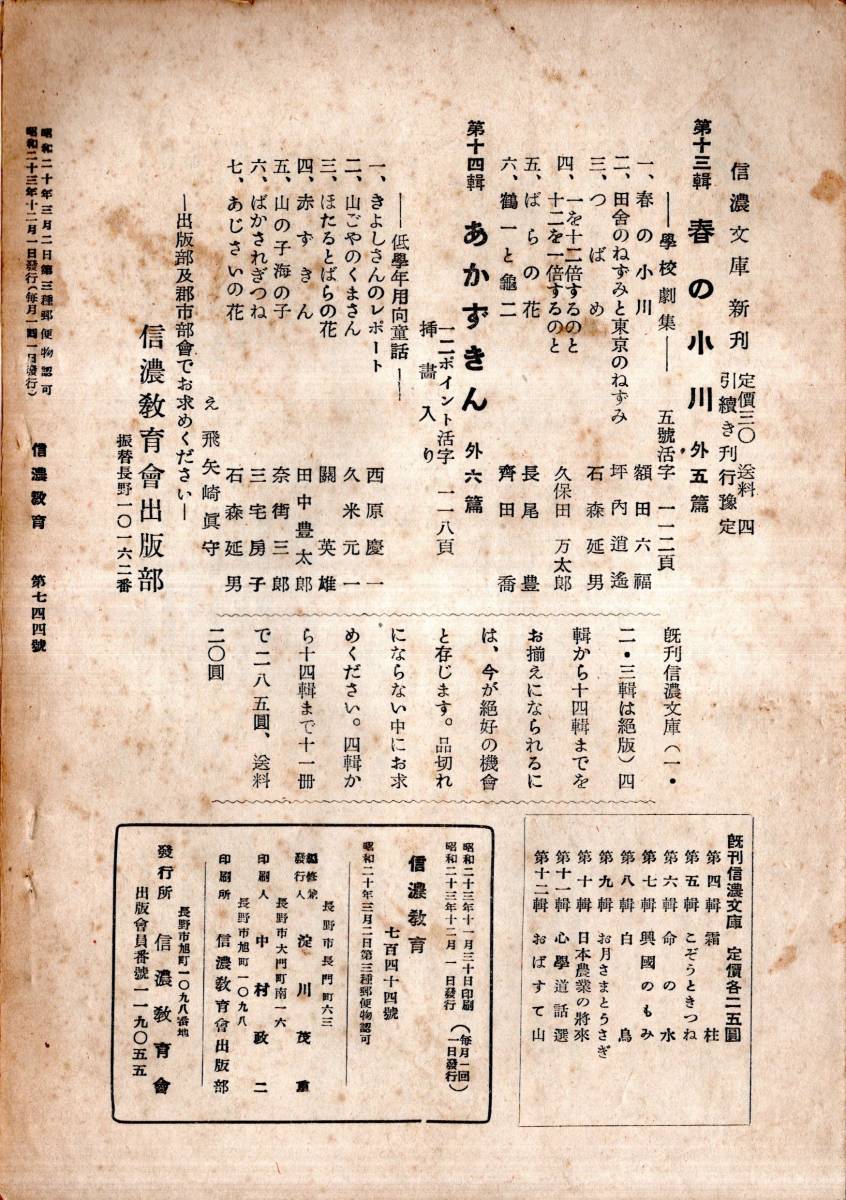 信濃文庫新刊
定價三〇 送料 四
引續き刊行豫定
第十三輯 春の小川 外五篇
―學校劇集―
五號活字 一一二頁
一、春の小川 額田六福
二、田舎のねずみと東京のねずみ 坪內逍遙
三、つばめ 石森延男
四、一を十二倍するのと
十二を一倍するのと 久保田万太郎
五、ばらの花 長尾豊
六、鶴一と龜二 齊田喬
第十四輯 あかずきん 外六篇
一二ポイント活字 一一八頁
挿畵入り
―低學年用向童話―
一、きよしさんのレポート 西原慶一
二、山ごやのくまさん 久米元一
三、ほたるとばらの花 關英雄
四、赤ずきん 田中豊太郎
五、山の子海の子 奈街三郎
六、ばかされぎつね 三宅房子
七、あじさいの花 石森延男
え 飛矢崎眞守
―出版部及郡市部會でお求めください―
信濃敎育會出版部
振替長野一〇一六二番
旣刊信濃文庫(一・
二・三輯は絶版)四
輯から十四輯までを
お揃えになられるに
は、今が絶好の機會
と存じます。品切れ
にならない中にお求
めください。四輯か
ら十四輯まで十一冊
で二八五圓、送料
二〇圓
旣刊信濃文庫 定價各二五圓
第四輯 霜柱
第五輯 こぞうときつね
第六輯 命の水
第七輯 興國のもみ
第八輯 白鳥
第九輯 お月さまとうさぎ
第十輯 日本農業の將來
第十一輯 心學道話選
第十二輯 おばすて山
昭和二十三年十一月三十日印刷
昭和二十三年十二月一日發行
(每月一回一日發行)
信濃敎育
七百四十四號
昭和二十年三月二日第三種郵便物認可
長野市長門町六三
編修兼發行人 淀川茂重
長野市大門町南一六
印刷人 中村政二
長野市旭町一〇九八
印刷所 信濃敎育會出版部
長野市旭町一〇九八番地
發行所 信濃敎育會
出版會員番號一一九〇五五
昭和二十年三月二日第三種郵便物認可
昭和二十三年十二月一日發行(每月一回一日發行)
信濃敎育 第七四四號